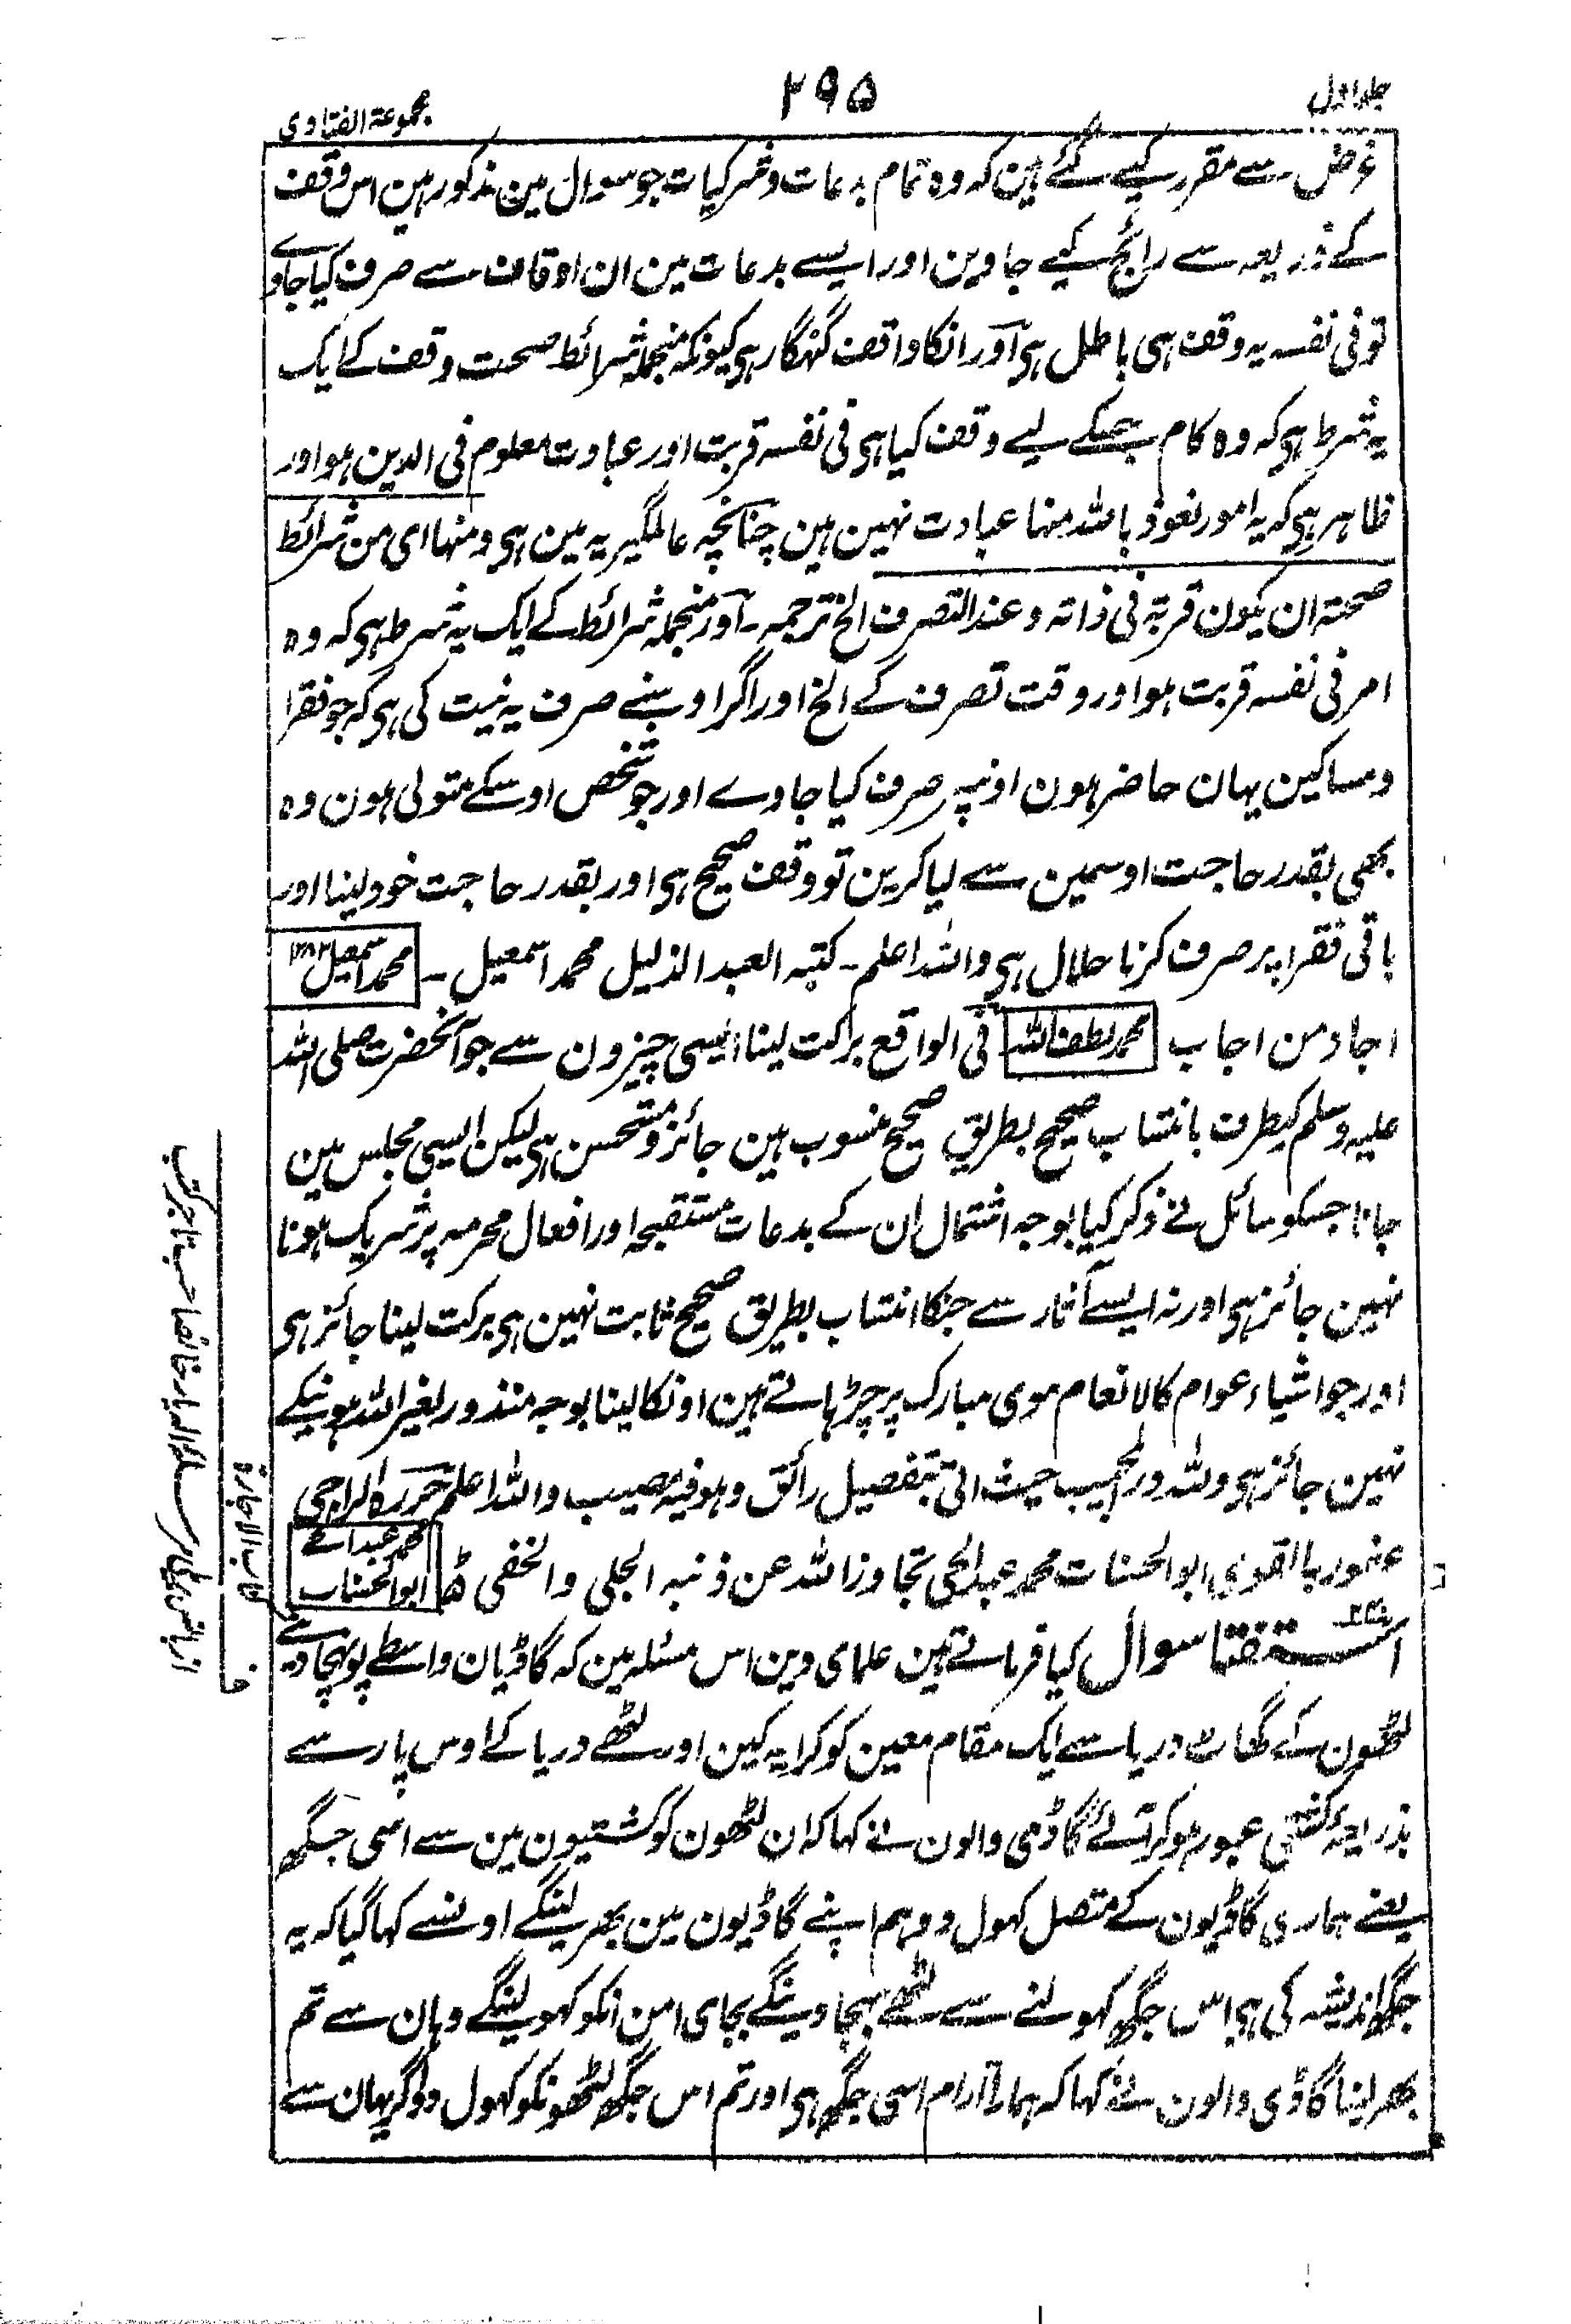 جلد اول
۲۹۵
مجموعۃ الفتاوی
غرض سے مقرر کیے گئے ہین کہ وہ تمام بدعات و شرکیات جو سوال مین مذکور ہین اس وقف
کے ذریعہ سے رائج کیے جاوین اور ایسے بدعات مین ان اوقاف سے صرف کیا جاوے
تو فی نفسہ یہ وقف ہی باطل ہی اور انکا واقف گنہگار ہی کیونکہ منجملہ شرائط صحت وقف کے ایک
یہ شرط ہی کہ وہ کام جسکے لیے وقف کیا ہی فی نفسہ قربت اور عبادت معلوم فی الدین ہو اور
ظاہر ہی کہ یہ امور نعوذ باللہ منہا عبادت نہین ہین چنانچہ عالمگیریہ مین ہی ومنہا ای من شرائط
صحتہ ان یکون قربۃ فی ذاتہ وعند التصرف الخ ترجمہ ۔ اور منجملہ شرائط کے ایک یہ شرط ہی کہ وہ
امر فی نفسہ قربت ہو اور وقت تصرف کے الخ اور اگر اوسنے صرف یہ نیت کی ہی کہ جو فقرا
و مساکین یہان حاضر ہون اونپہ صرف کیا جاوے اور جو شخص اوسکے متولی ہون وہ
بھی بقدر حاجت اوسمین سے لیا کرین تو وقف صحیح ہی اور بقدر حاجت خود لینا اور
باقی فقرا پر صرف کرنا حلال ہی واللہ اعلم ۔ کتبہ العبد الذلیل محمد اسمعیل ۔ محمد اسمعیل
اجاد من اجاب محمد لطف اللہ فی الواقع برکت لینا ایسی چیزون سے جو آنحضرت صلی اللہ
علیہ وسلم کیطرف بانتساب صحیح بطریق صحیح منسوب ہین جائز و مستحسن ہی لیکن ایسی مجلس مین
جانا جسکو سائل نے ذکر کیا بوجہ اشتمال ان کے بدعات مستقبحہ اور افعال محرمہ پر شریک ہونا
نہین جائز ہی اور نہ ایسے آثار سے جنکا انتساب بطریق صحیح ثابت نہین ہی برکت لینا جائز ہی
اور جو اشیاء عوام کالانعام موی مبارک پر چڑہاتے ہین اونکا لینا بوجہ منذور لغیر اللہ ہونیکے
نہین جائز ہی وللہ در المجیب حیث اتی بتفصیل رائق وہو فیہ مصیب واللہ اعلم حررہ الراجی
عفو ربہ القوی ابو الحسنات محمد عبد الحی تجاوز اللہ عن ذنبہ الجلی والخفی محمد عبد الحی ابو الحسنات
استفتا سوال کیا فرماتے ہین علمای دین اس مسئلہ مین کہ گاڑیان واسطے پونہچا دینے
لٹھون کے گھاٹ دریا سے ایک مقام معین کو کرایہ کین اور لٹھے دریا کے اوس پار سے
بذریعۂ کشتی عبور ہو کر آئے گاڑی والون نے کہا کہ ان لٹھون کو کشتیون مین سے اسی جگھ
یعنے ہماری گاڑیون کے متصل کہول دو ہم اپنے گاڑیون مین بھر لینگے اونسے کہا گیا کہ یہ
جگھ اندیشہ کی ہی اس جگھ کہولنے سے لٹھے بہجاوینگے بجای امن انکو کہولینگے وہان سے تم
بھر لینا گاڑی والون نے کہا کہ ہمارا آرام اسی جگھ ہی اور تم اس جگھ لٹھونکو کہول دو اگر یہان سے
کتاب الاجارۃ